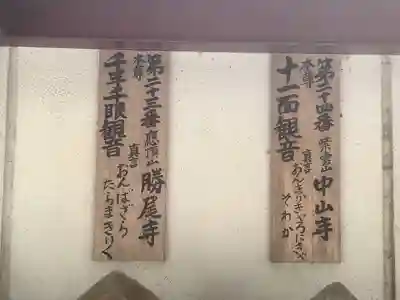 第二十四番 紫雲山 中山寺
本尊 十一面観音 真言 おんまかきゃろにきゃそわか
第二十三番 應頂山 勝尾寺
本尊 千手千眼観音 真言 おんばざらたらまきりく